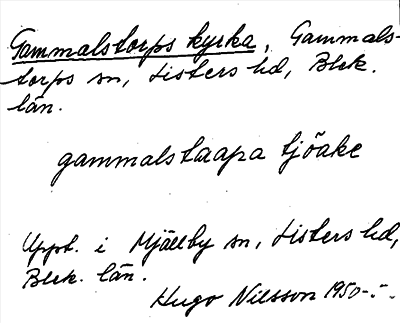 Gammalstorps kyrka, Gammals-
torps sn, Listers hd, Blek.
län.
gammalstaapa tjöake
Uppt. i Mjällby sn, Listers hd,
Blek. län.
Hugo Nilsson 1950